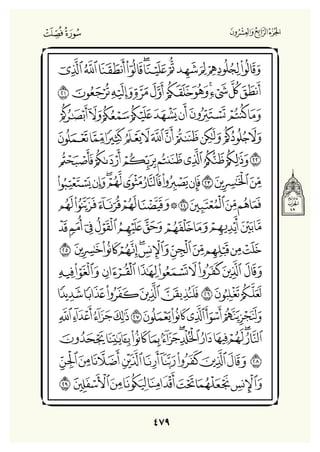 سُورَةُ فُصِّلَتْ
الجُزْءُ الرَّابِعُ وَالعِشْرُونَ
وَقَالُوا۟ لِجُلُودِهِمْ لِمَ شَهِدتُّمْ عَلَيْنَا ۖ قَالُوٓا۟ أَنطَقَنَا ٱللَّهُ ٱلَّذِىٓ
أَنطَقَ كُلَّ شَىْءٍ وَهُوَ خَلَقَكُمْ أَوَّلَ مَرَّةٍ وَإِلَيْهِ تُرْجَعُونَ ٢١
وَمَا كُنتُمْ تَسْتَتِرُونَ أَن يَشْهَدَ عَلَيْكُمْ سَمْعُكُمْ وَلَآ أَبْصَٰرُكُمْ
وَلَا جُلُودُكُمْ وَلَٰكِن ظَنَنتُمْ أَنَّ ٱللَّهَ لَا يَعْلَمُ كَثِيرًا مِّمَّا تَعْمَلُونَ
٢٢ وَذَٰلِكُمْ ظَنُّكُمُ ٱلَّذِى ظَنَنتُم بِرَبِّكُمْ أَرْدَىٰكُمْ فَأَصْبَحْتُم
مِّنَ ٱلْخَٰسِرِينَ ٢٣ فَإِن يَصْبِرُوا۟ فَٱلنَّارُ مَثْوًى لَّهُمْ ۖ وَإِن يَسْتَعْتِبُوا۟
فَمَا هُم مِّنَ ٱلْمُعْتَبِينَ ٢٤ ۞ وَقَيَّضْنَا لَهُمْ قُرَنَآءَ فَزَيَّنُوا۟ لَهُم
مَّا بَيْنَ أَيْدِيهِمْ وَمَا خَلْفَهُمْ وَحَقَّ عَلَيْهِمُ ٱلْقَوْلُ فِىٓ أُمَمٍ قَدْ
خَلَتْ مِن قَبْلِهِم مِّنَ ٱلْجِنِّ وَٱلْإِنسِ ۖ إِنَّهُمْ كَانُوا۟ خَٰسِرِينَ ٢٥
وَقَالَ ٱلَّذِينَ كَفَرُوا۟ لَا تَسْمَعُوا۟ لِهَٰذَا ٱلْقُرْءَانِ وَٱلْغَوْا۟ فِيهِ
لَعَلَّكُمْ تَغْلِبُونَ ٢٦ فَلَنُذِيقَنَّ ٱلَّذِينَ كَفَرُوا۟ عَذَابًا شَدِيدًا
وَلَنَجْزِيَنَّهُمْ أَسْوَأَ ٱلَّذِى كَانُوا۟ يَعْمَلُونَ ٢٧ ذَٰلِكَ جَزَآءُ أَعْدَآءِ ٱللَّهِ
ٱلنَّارُ ۖ لَهُمْ فِيهَا دَارُ ٱلْخُلْدِ ۖ جَزَآءًۢ بِمَا كَانُوا۟ بِـَٔايَٰتِنَا يَجْحَدُونَ
٢٨ وَقَالَ ٱلَّذِينَ كَفَرُوا۟ رَبَّنَآ أَرِنَا ٱلَّذَيْنِ أَضَلَّانَا مِنَ ٱلْجِنِّ
وَٱلْإِنسِ نَجْعَلْهُمَا تَحْتَ أَقْدَامِنَا لِيَكُونَا مِنَ ٱلْأَسْفَلِينَ ٢٩
٤٧٩